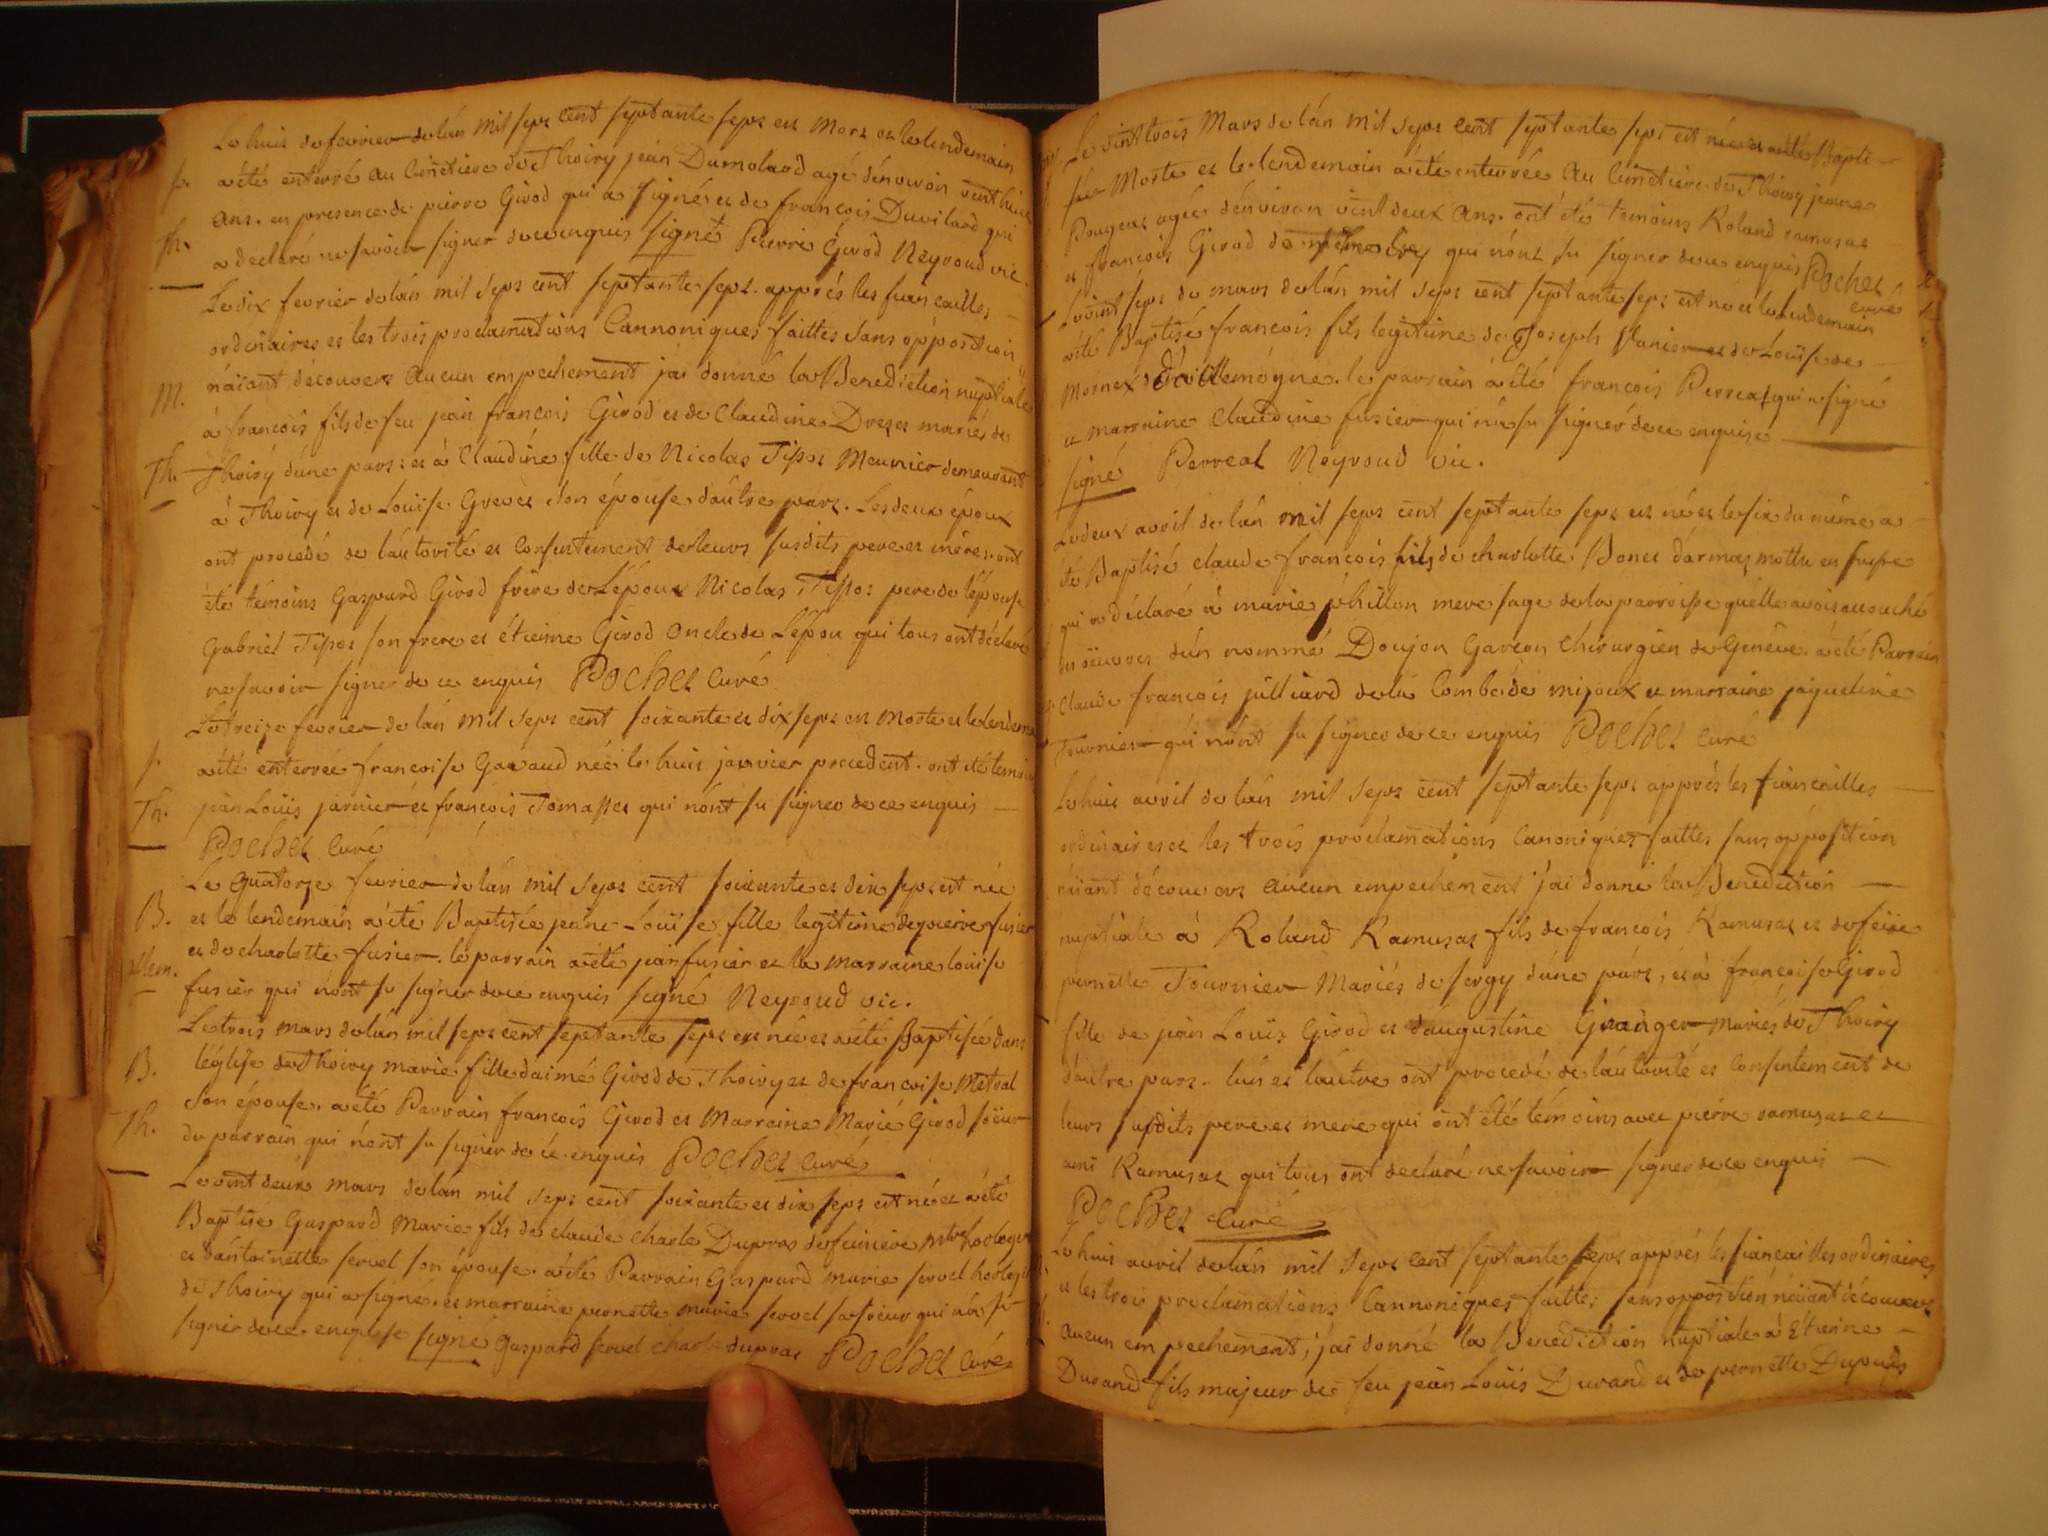 Le huit de fevrier de lán mil sept cent septante sept est Mort et le lendemain
s.
a été enterré au Cimetiere de Thoiry jean Dumolard agé dénviron vint huit
ans. en presence de pierre Girod qui a signé et de francois Duvilard qui
Th.
a declaré ne savoir signer de ce enquis signé Pierre Girod Neyroud vic.
Le dix fevrier de lán mil sept cent septante sept. apprés les fiancailles
ordinaires et les trois proclamations Cannoniques faittes sans opposition
náiant décovert aucun empechement jái donné la Benediction nuptiale
M.
à francois fils de feu jean francois Girod et de Claudine Drezet mariés de
Th.
Thoiry dúne part: et à Claudine fille de Nicolas Tissot Meunier demeurant
à Thoiry et de Louise Grevet son épouse daûtre part. Les deux époux
ont procedé de láutorité et Consentement de leurs susdits pere et mére. ont
été témoins Gaspard Girod frère de Lépoux Nicolas Tissot pere de lépouse
Gabriel Tissot son frere et étienne Girod oncle de Lépou qui tous ont déclaré
ne savoir signer de ce enquis Pochet Curé
Le treize fevrier de lán mil sept cent soixante et dix sept est Morte et le lendemain
s.
a été enterrée francoise Gavaud née le huit janvier precedent. ont été temoins
Th.
jean Louis jarnier et francois Tomasset qui nónt su signer de ce enquis
Pochet Curé
Le Quatorze fevrier de lán mil sept cent soixante et dix sept est née
B.
et le lendemain a été Baptisée jeane Louise fille legitime de pierre fusier
allem.
et de charlotte fusier. le parrain a été jean fusier et la marraine louise
fusier qui nónt su signer de ce enquis signé Neyroud vic.
Le trois mars de lán mil sept cent septante sept est née et a été Baptisée dans
B.
léglise de Thoiry marie fille daimé Girod de Thoiry et de francoise Metral
son épouse. a été Parrain francois Girod et Marraine Marie Girod soeur
Th.
du parrain qui nónt su signer de ce enquis Pochet Curé
Le vint deux mars de lán mil sept cent soixante et dix sept est né et a été
Baptise Gaspard Marie fils de claude charle Dupras de feiniere mtre horloger
et dántoinette servel son épouse. a été Parrain Gaspard marie servel horloger
de Thoiry qui a signé. et marraine pernette marie servel sa soeur qui ná su
signer de ce enquise signé gaspard servel charle dupras Pochet Curé
Le vint trois Mars de lán mil sept cent septante sept est née et a été Bapti
Morte et le lendemain a été enterrée au Cimetière de Thoiry jeanne
Pouget agée dénviron vint deux ans. ont été temoins Roland ramusat
et francois Girod de qui nónt su signer de ce enquis Pochet
curé
Le vint sept de mars de lán mil sept cent septante sept est né et le lendemain
a été Baptisé francois fils legitime de Joseph Vanier et de Loüise de
Mornex le parrain a été francois Perreal qui a signé
et marraine claudine fusier qui ná su signer de ce enquise
signé Perreal Neyroud vic.
Le deux avril de lán mil sept cent septante sept est né et le six du méme a
été Baptisé claude francois fils de charlotte Bonet dármaz mottu en suisse
qui a déclaré à marie philllon mere sage de la parroisse quélle avoit accouché
des oeuvres dún nommé Doujon Garcon chirurgien de Genéve. a été Parrain
Claude francois julliard de la Combe de mijoux et marraine jaqueline
Tournier qui nónt su signer de ce enquis Pochet curé
Le huit avril de lán mil sept cent septante sept apprés les fiancailles
ordinaires et les trois proclamations canoniques faittes sans opposition
náiant décou ert aucun empechement jái donné la Benediction
nuptiale à Roland Ramusat fils de francois Ramusat et de feüe
pernette Tournier Mariés de sergy dúne párt, et à francoise Girod
fille de jean Louis Girod et daugustine Grainger mariés de Thoiry
dáutre part. lún et láutre ont procedé de láutorité et Consentement de
leurs susdits pere et mere qui ont été témoins avec pierre ramusat et
ami Ramusat qui tous ont declaré ne savoir signer de ce enquis
Pochet curé
Le huit avril de lán mil sept cent septante sept apprés les fiançailles ordinaires
et les trois proclamations Cannoniques faittes sans opposition náiant découvert
Aucun empechement, jái donné la Benediction nuptiale à étienne
Durand fils majeur de feu jean Louis Durand et de pernette Dupuis